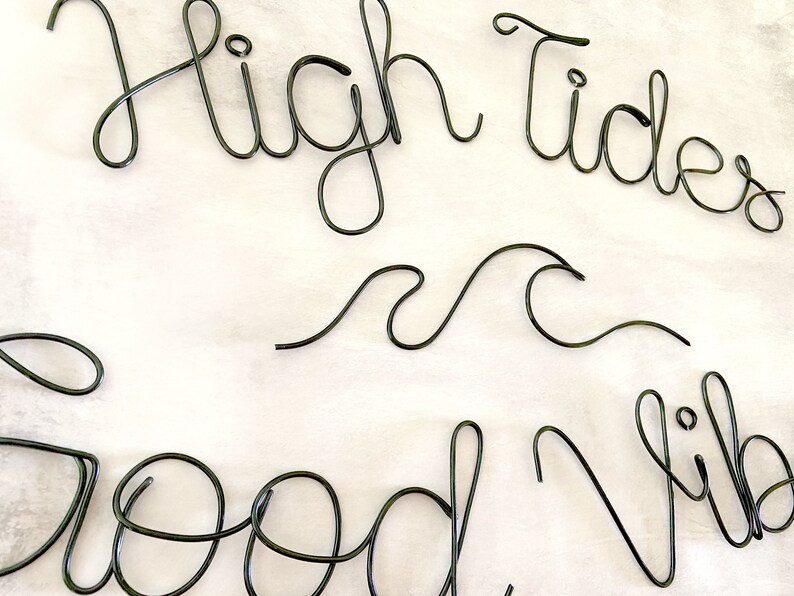 High Tides
Good Vib